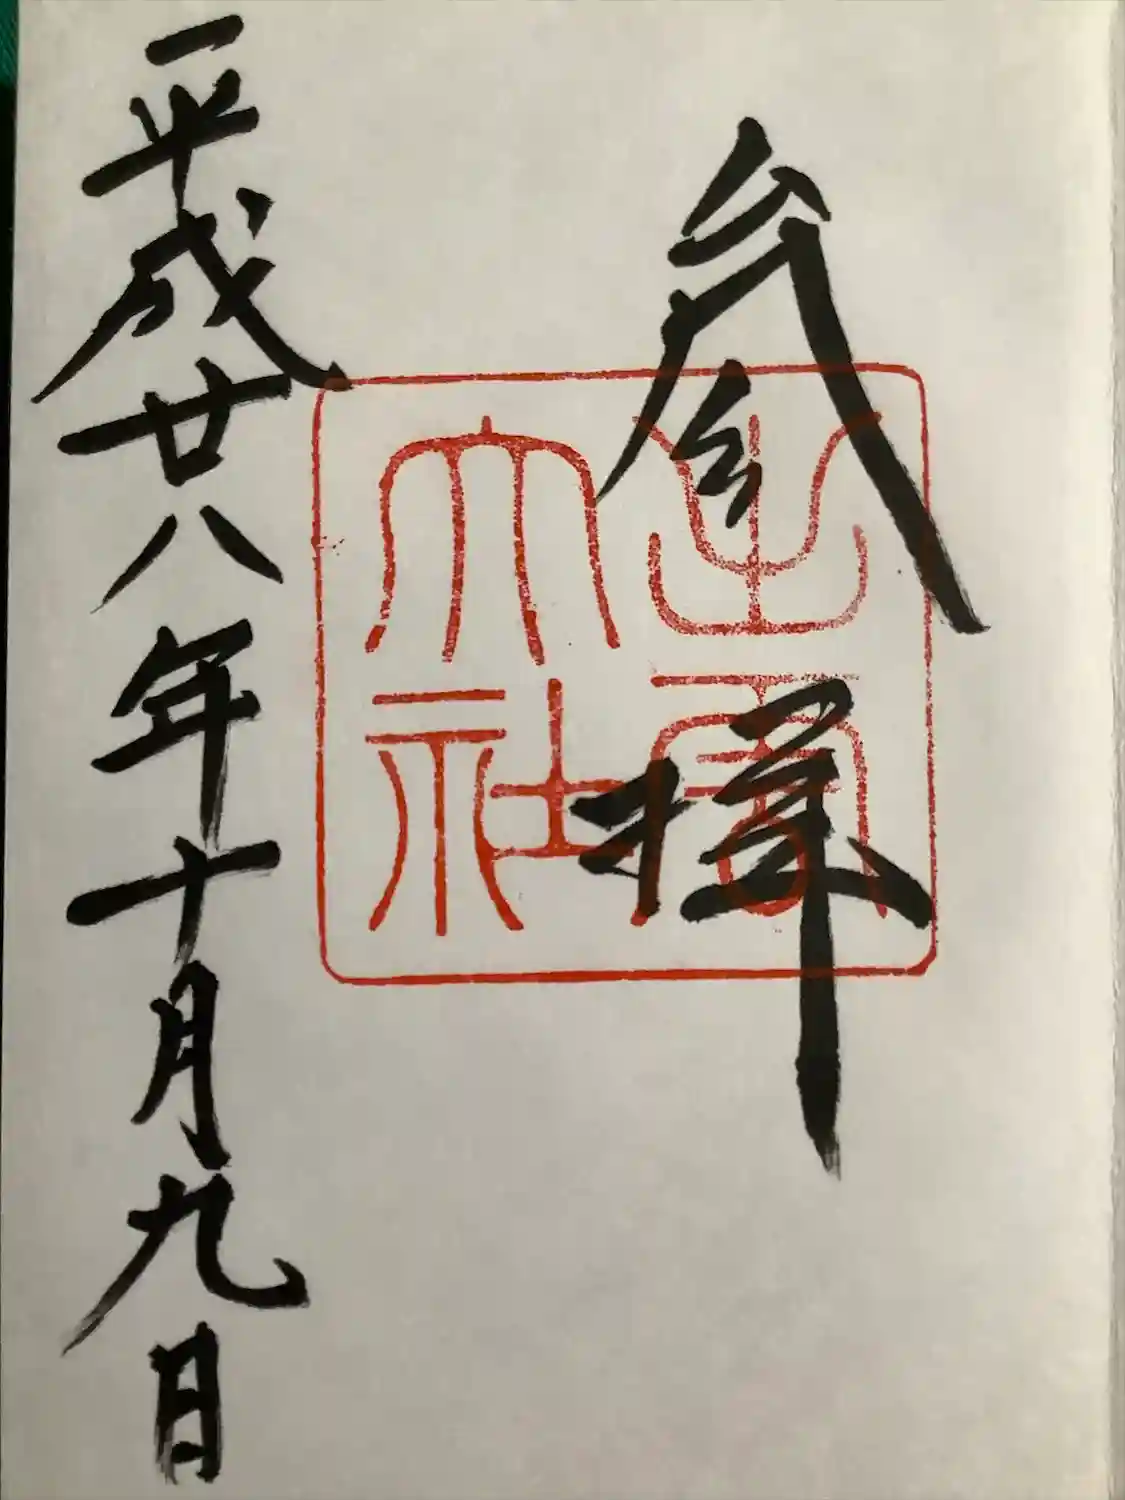 参拝
出雲大社
平成廿八年十月九日